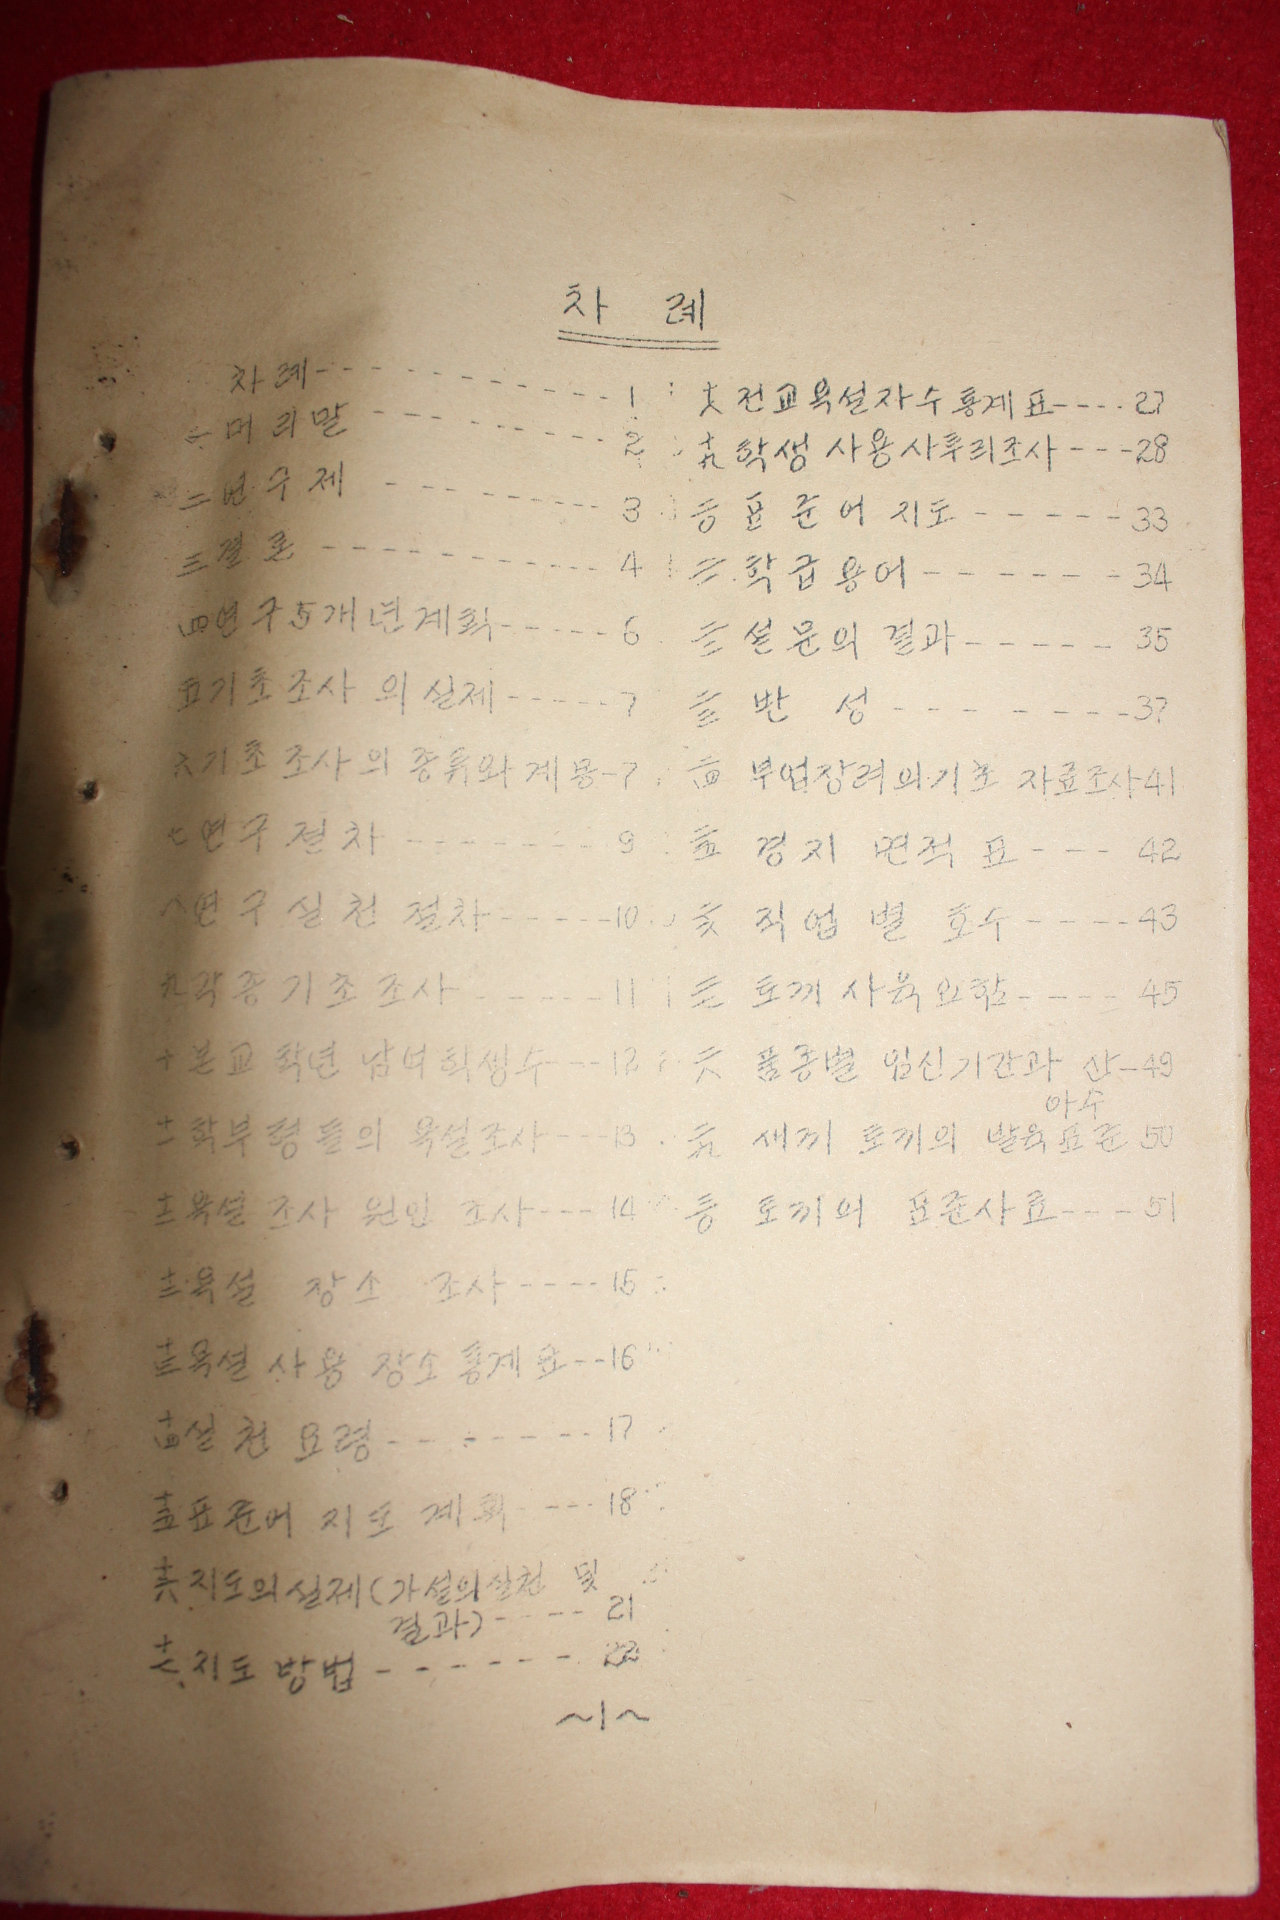 차 례
차례---------1
一 머리말------2
二 연구제------3
三 결론------4
四 연구5개년계획-----6
五 기초조사의 실제-----7
六 기초조사의 종류와 계몽-7
七 연구절차-------9
八 연구실천 절차-----10
九 각종기초조사-----11
十 본교 학년 남녀학생수---12
十一 학부형들의 욕설조사---13
十二 욕설 조사 원인 조사---14
十三 욕설 장소 조사----15
十三 욕설 사용 장소통계표--16
十四 실천요령------17
十五 표준어 지도 계획----18
十六 지도의실제(가설의실천 및
결과)----21
十七 지도방법------22
전교욕설자수통계표----27
十九 학생 사용사투리조사---28
표준어 지도-----33
학급용어------34
설문의 결과-----35
반 성-------37
부업장려의기초 자료조사41
경지 면적표---42
직업별 호수----43
토끼 사육요함----45
품종별 임신기간과 산-49
아수
새끼 토끼의 발육표준50
토끼의 표준사료---51
~1~